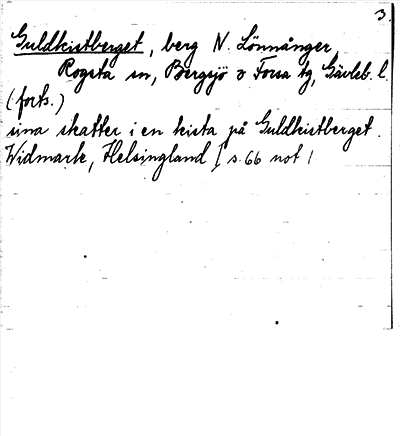 3.
Guldkistberget, berg N. Lönnånger,
Rogsta sn, Bergsjö o Forsa tg, Gävleb. l.
(forts.)
sina skatter i en kista på Guldkistberget.
Widmark, Helsingland I s. 66 not 1